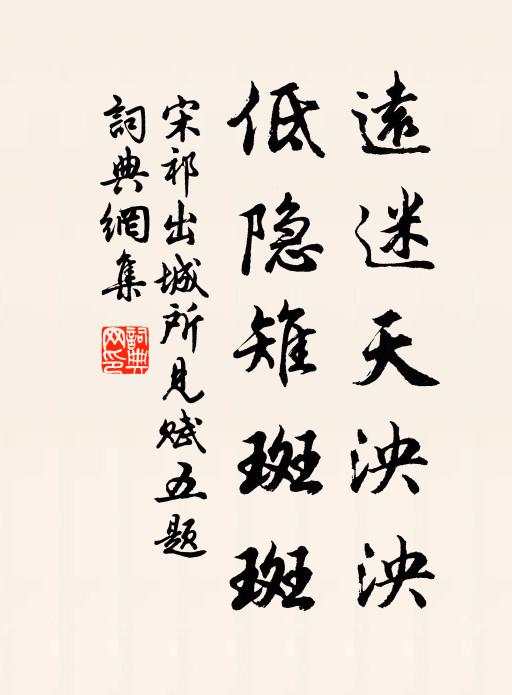 遠迷天泱泱
低隐雉斑斑
宋祁出城所見赋五题
詞典網集
詞典網印